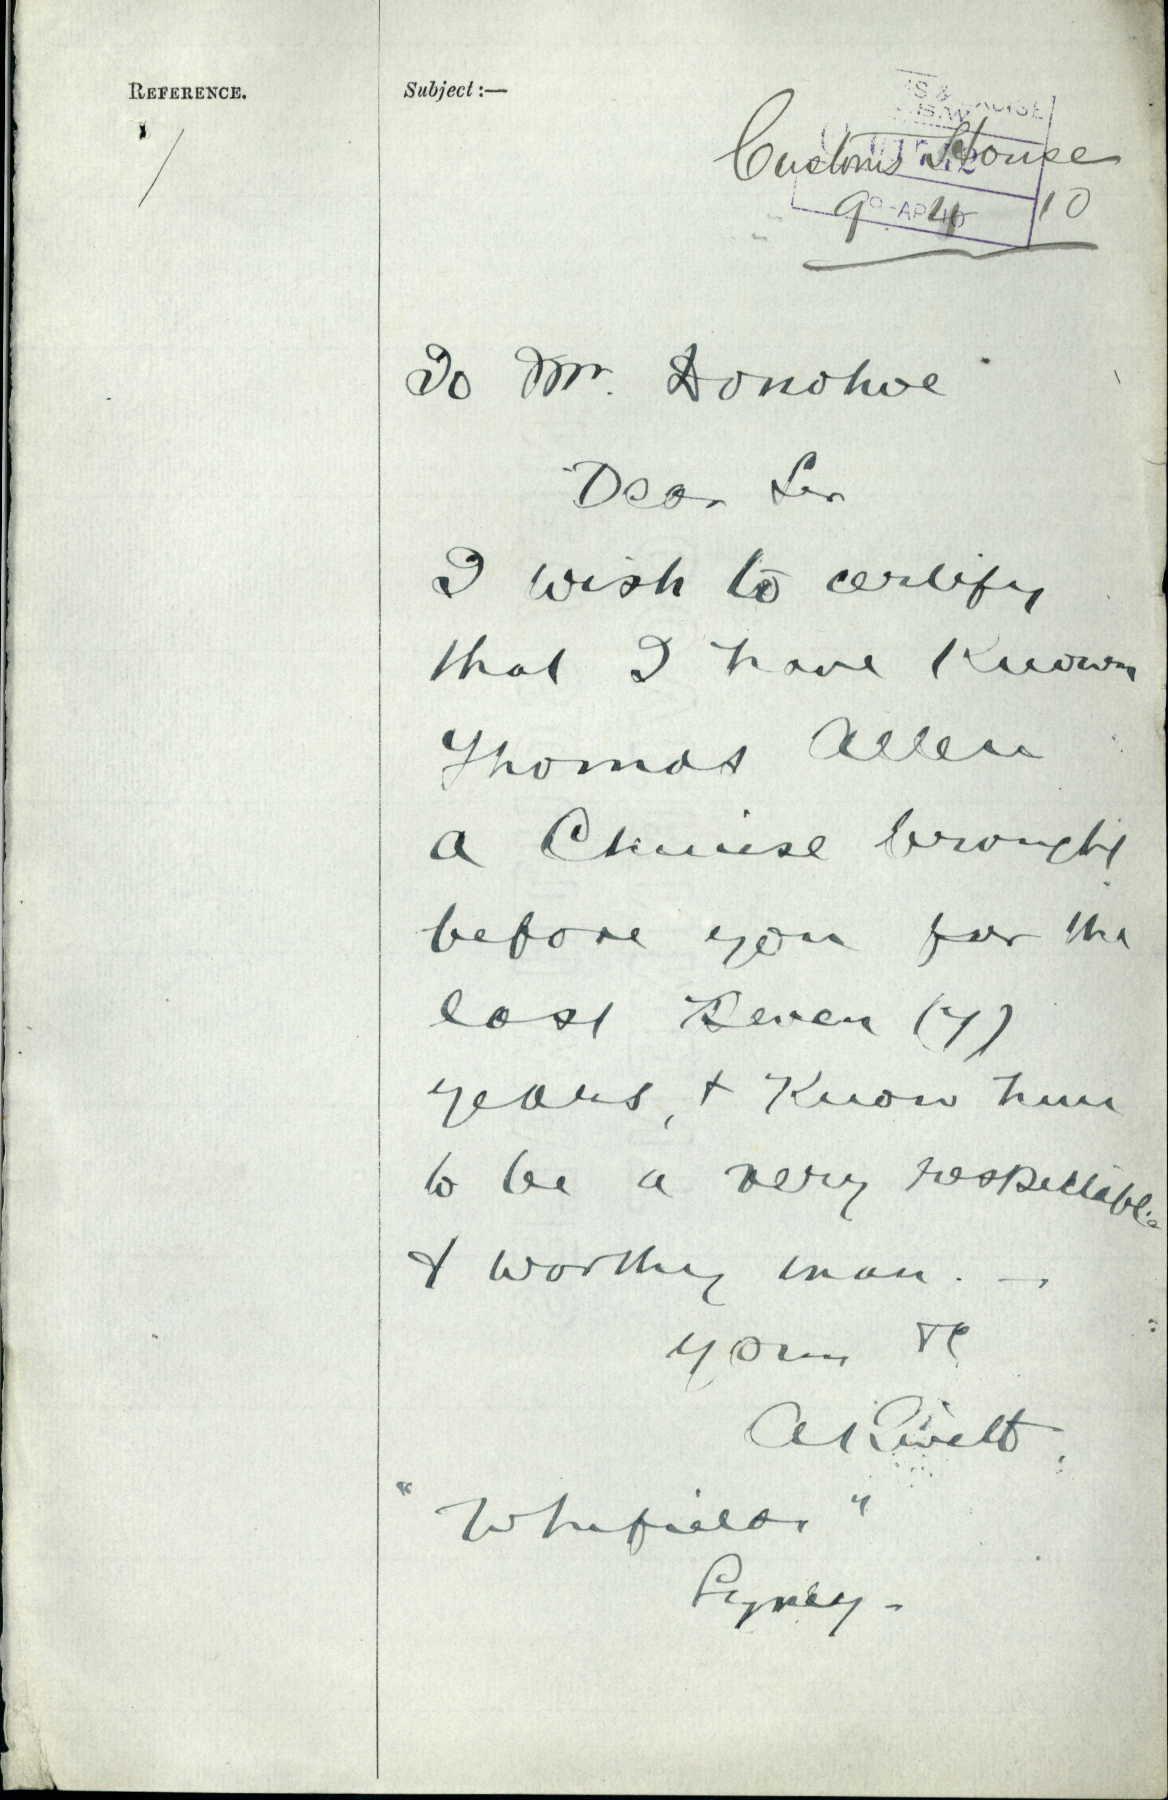 REFERENCE.
Subject :—
Customs House
9 4 10
To Mr. Donohoe
Dear Sir
I wish to certify
that I have known
Thomas Allen
a Chinese brought
before you for the
last Seven (7)
years, & Know him
to be a very respectable
& worthy man. —
Yours &c
"
"
Sydney -